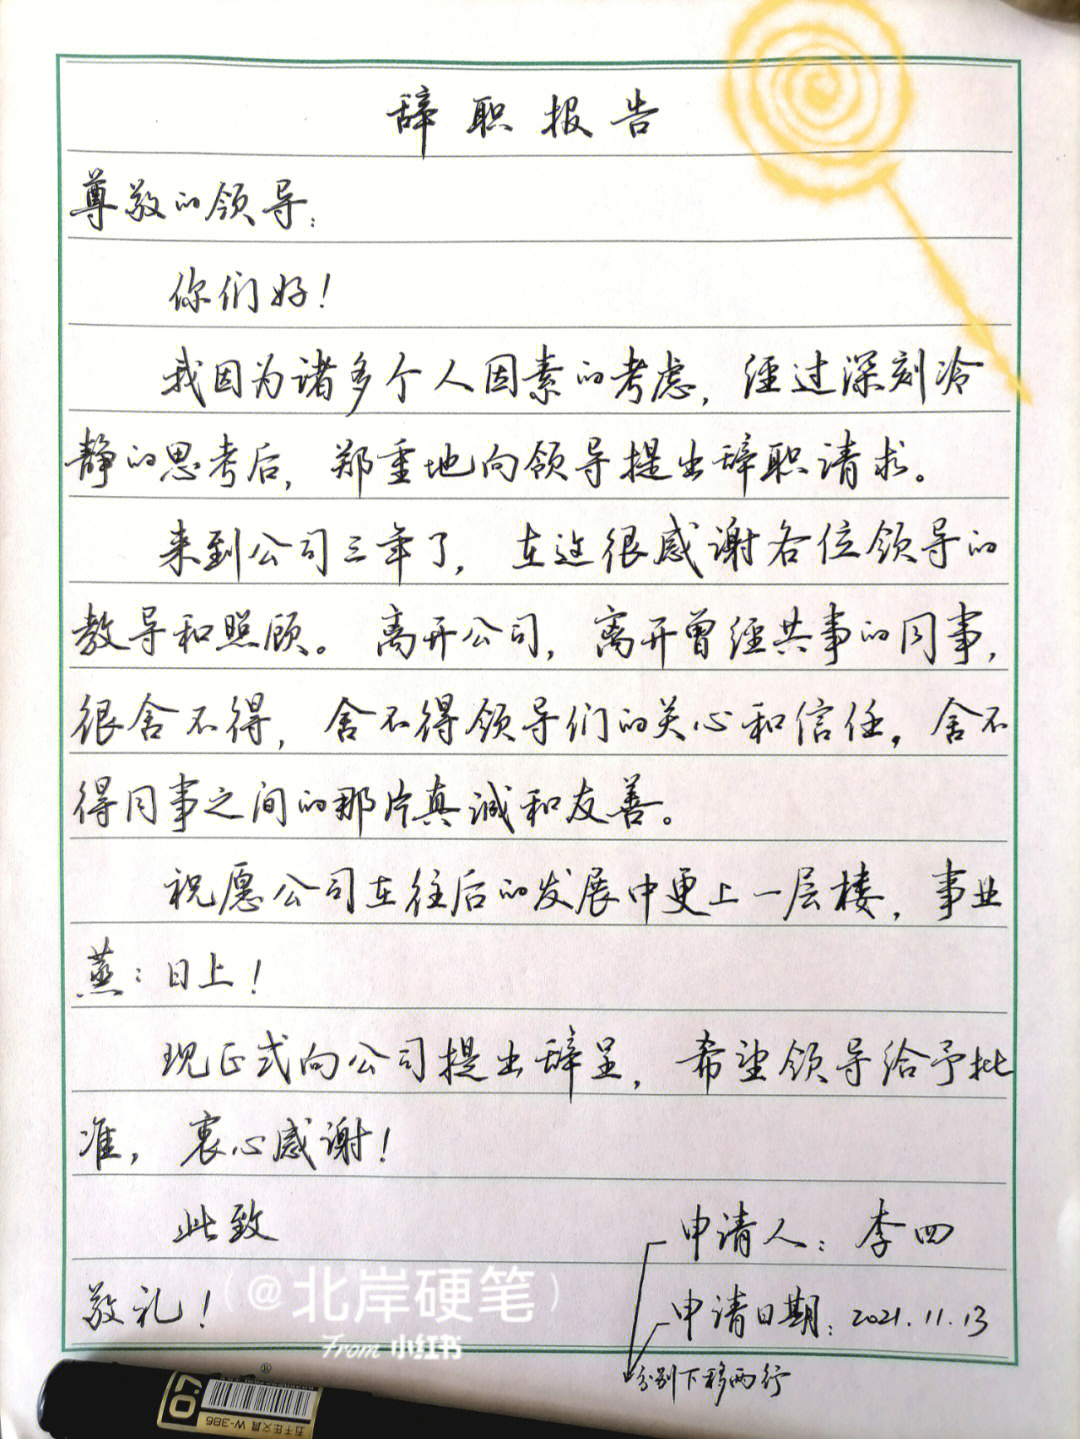 辞职报告
尊敬的领导：
你们好！
我因为诸多个人因素的考虑，经过深刻冷
静的思考后，郑重地向领导提出辞职请求。
来到公司三年了，在这很感谢各位领导的
教导和照顾。离开公司，离开曾经共事的同事，
很舍不得，舍不得领导们的关心和信任，舍不
得同事之间的那片真诚和友善。
祝愿公司在往后的发展中更上一层楼，事业
蒸：日上！
现正式向公司提出辞呈，希望领导给予批
准，衷心感谢！
此致
申请人：李四
敬礼！
申请日期：2021.11.13
分别下移两行
(@北岸硬笔)
From 小红书
0.7
五千年文具 W-386